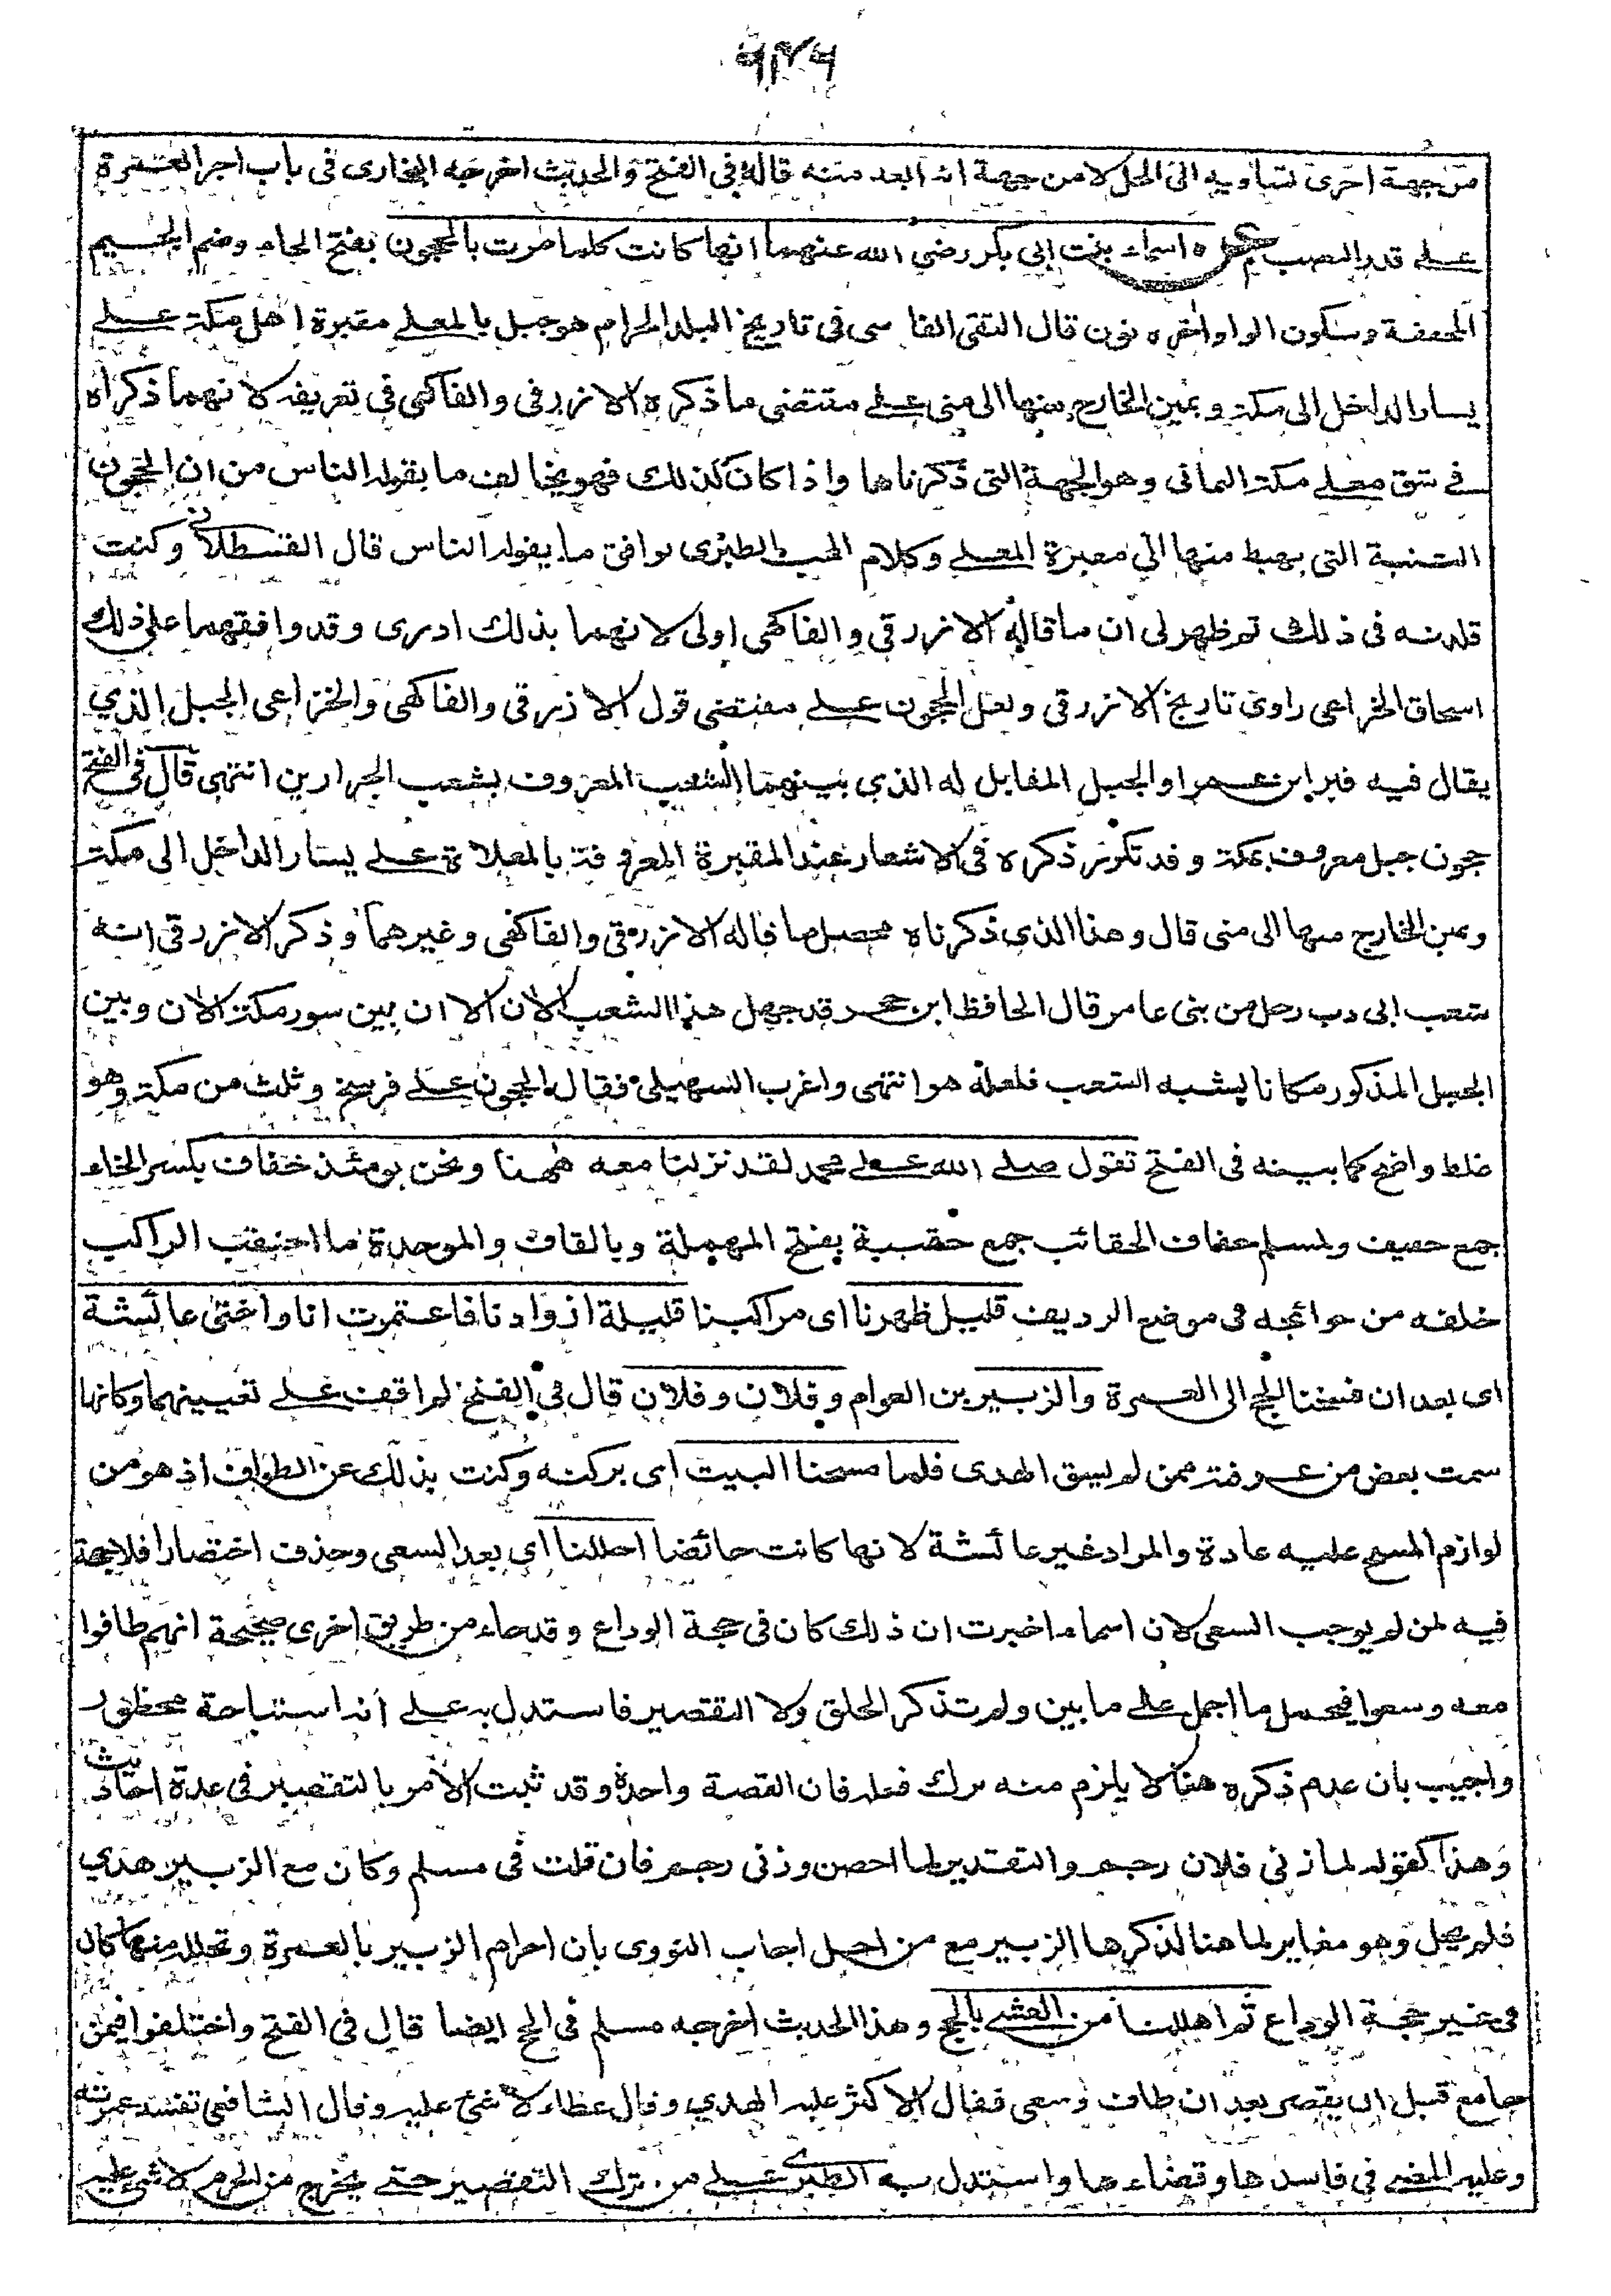 من جهة اخرى تساويه الى الحل لا من جهة انه ابعد منه قاله في الفتح والحديث اخرجه البخارى فى باب اجر العمرة
على قدر النصب عن اسماء بنت ابى بكر رضى الله عنهما انها كانت كلما مرت بالحجون بفتح الحاء وضم الجيم
المخففة وسكون الواو اخره نون قال التقى الفاسى فى تاريخ البلد الحرام هو جبل بالمعلى مقبرة اهل مكة على
يسار الداخل الى مكة ويمين الخارج منها الى منى على مقتضى ما ذكره الازرقى والفاكهى فى تعريفه لانهما ذكراه
فى شق معلى مكة اليمانى وهو الجهة التى ذكرناها واذا كان كذلك فهو يخالف ما يقوله الناس من ان الحجون
الثنية التى يهبط منها الى مقبرة المعلى وكلام المحب الطبرى يوافق ما يقوله الناس قال القسطلانى وكنت
قلدته فى ذلك ثم ظهر لى ان ما قاله الازرقى والفاكهى اولى لانهما بذلك ادرى وقد وافقهما على ذلك
اسحاق الخزاعى راوى تاريخ الازرقى ولعل الحجون على مقتضى قول الازرقى والفاكهى والخزاعى الجبل الذي
يقال فيه قبر ابن عمر او الجبل المقابل له الذي بينهما الشعب المعروف بشعب الجرارين انتهى قال فى الفتح
حجون جبل معروف بمكة وقد تكرر ذكره فى الاشعار عند المقبرة المعروفة بالمعلاة على يسار الداخل الى مكة
ويمين الخارج منها الى منى قال وهذا الذي ذكرناه محصل ما قاله الازرقى والفاكهى وغيرهما وذكر الازرقى انه
شعب ابى دب رجل من بنى عامر قال الحافظ ابن حجر قد جهل هذا الشعب الآن الا ان بين سور مكة الآن وبين
الجبل المذكور مكانا يشبه الشعب فلعله هو انتهى واغرب السهيلى فقال الحجون على فرسخ وثلث من مكة وهو
غلط واضح كما بينه فى الفتح تقول صلى الله على محمد لقد نزلنا معه ههنا ونحن يومئذ خفاف بكسر الخاء
جمع خفيف ولمسلم خفاف الحقائب جمع حقيبة بفتح المهملة وبالقاف والموحدة ما احتقب الراكب
خلفه من حوائجه فى موضع الرديف قليل ظهرنا اى مراكبنا قليلة ازوادنا فاعتمرت انا واختى عائشة
اى بعد ان فسخنا الحج الى العمرة والزبير بن العوام وفلان وفلان قال فى الفتح لم اقف على تعيينهما وكانها
سمت بعض من عرفته ممن لم يسق الهدى فلما مسحنا البيت اى بركنه وكنت بذلك عن الطواف اذ هو من
لوازم المسح عليه عادة والمراد غير عائشة لانها كانت حائضا احللنا اى بعد السعى وحذف اختصارا فلا حجة
فيه لمن لم يوجب السعى لان اسماء اخبرت ان ذلك كان فى حجة الوداع وقد جاء من طريق اخرى صحيحة انهم طافوا
معه وسعوا فيحمل ما اجمل على ما بين ولم تذكر الحلق ولا التقصير فاستدل به على انه استباحة محظور
واجيب بان عدم ذكره هنا لا يلزم منه ترك فعله فان القصة واحدة وقد ثبت الامر بالتقصير فى عدة احاديث
وهذا كقوله لما زنى فلان رجم والتقدير لما احصن وزنى رجم فان قلت فى مسلم وكان مع الزبير هدي
فلم يحل وهو مغاير لما هنا لذكرها الزبير مع من احل اجاب النووى بان احرام الزبير بالعمرة وتحلله منها كان
فى غير حجة الوداع ثم اهللنا من العشى بالحج وهذا الحديث اخرجه مسلم فى الحج ايضا قال فى الفتح واختلفوا فيمن
جامع قبل ان يقصر بعد ان طاف وسعى فقال الاكثر عليه الهدي وقال عطاء لا شئ عليه وقال الشافعى تفسد عمرته
وعليه المضى فى فاسدها وقضاءها واستدل به الطبرى على من ترك التقصير حتى يخرج من الحرم لا شئ عليه